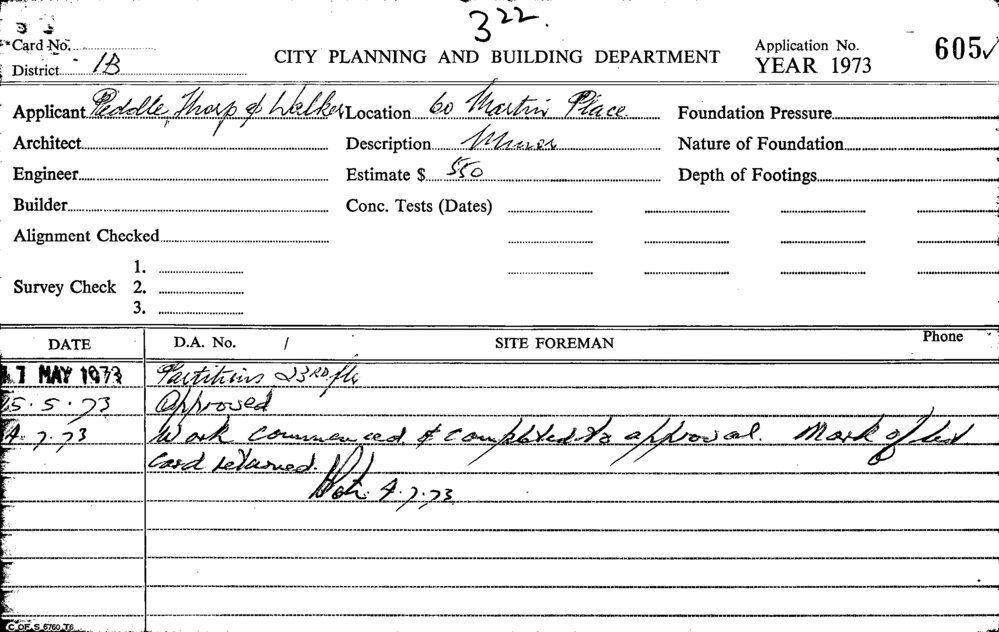 3 22.
Card No.
District 1B
CITY PLANNING AND BUILDING DEPARTMENT
Application No. 605 ✓
YEAR 1973
Applicant Peddle Thorp & Walker Location 60 Martin Place Foundation Pressure
Architect Description Nature of Foundation
Engineer Estimate $ 550 Depth of Footings
Builder Conc. Tests (Dates)
Alignment Checked
1.
Survey Check 2.
3.
DATE D.A. No. / SITE FOREMAN Phone
7 MAY 1973 Partitions 23RD flr
5.5.73 Approved
4.7.73 Work commenced & completed to approval. Mark off list
card returned.
4.7.73
C OF S 6760 T6